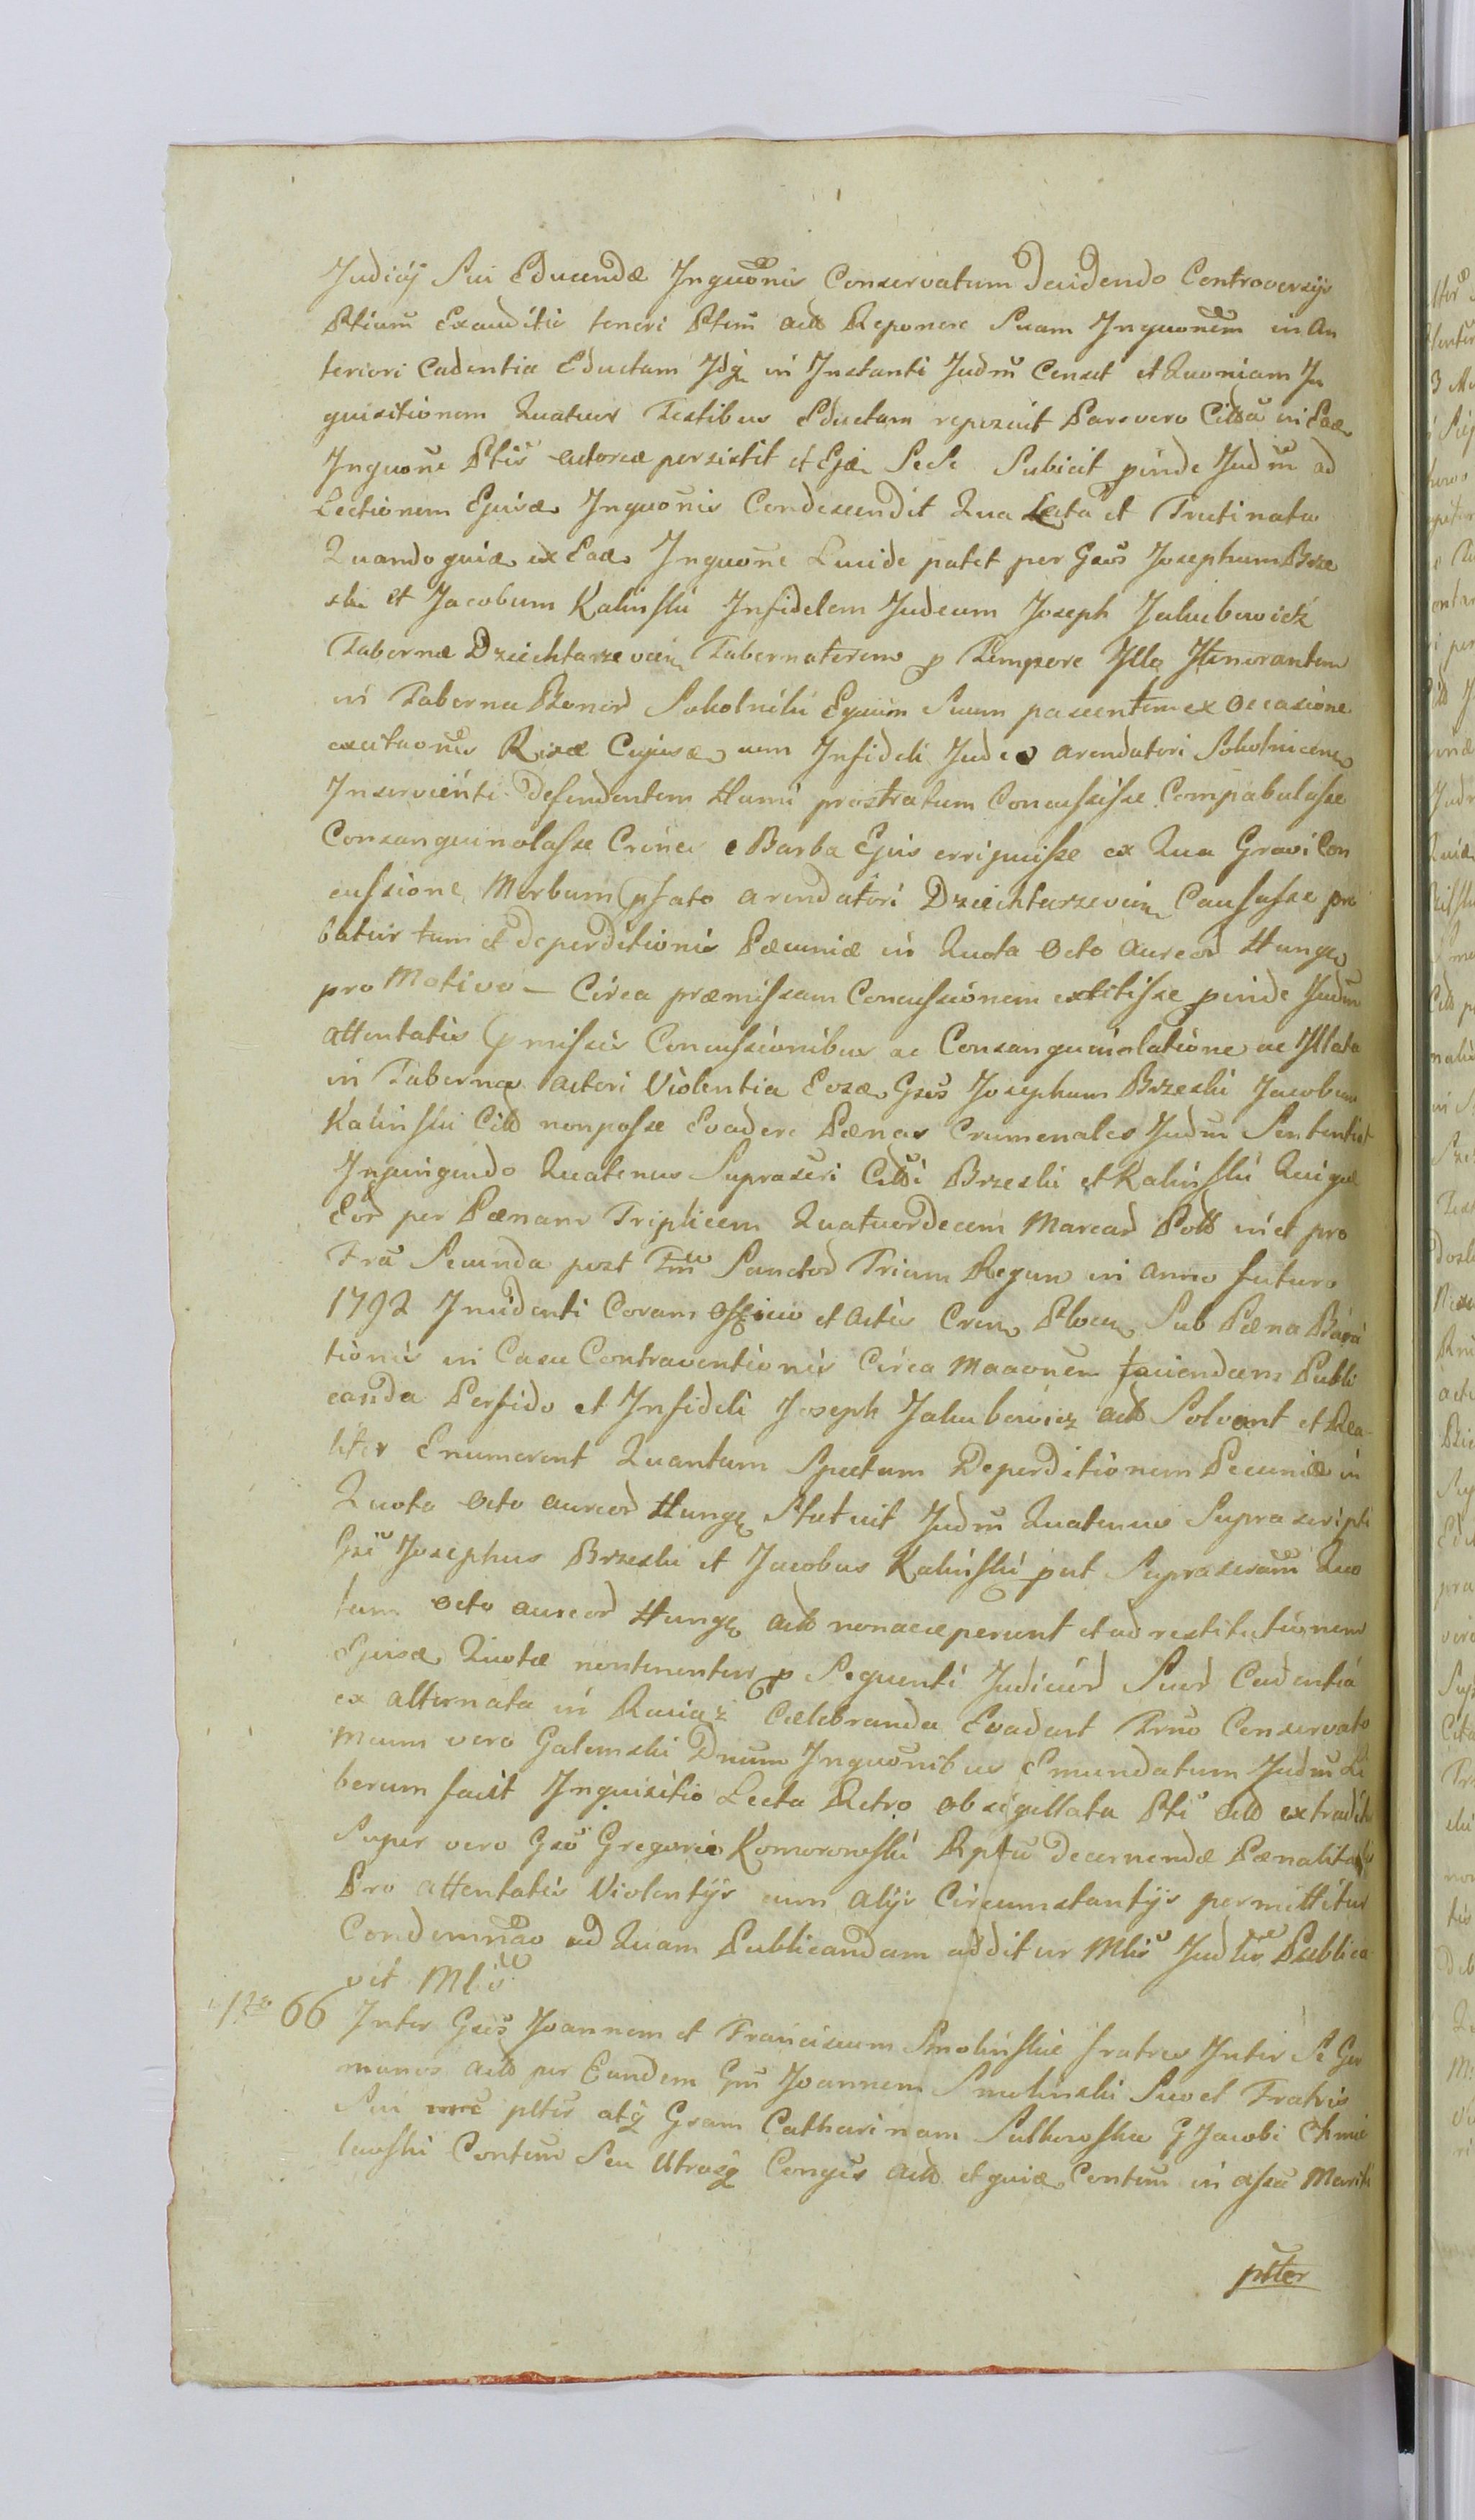 Judicij Sui Educendæ Inquõnis Conservatum Decidendo Controversijs
Ptium Exauditis teneri Ptem actõ Reponere Suam Inquonem in An
teriori Cadentia Eductam Idq in Instanti Judm̃ Censet et Quoniam In
quisitionem Quatuor Testibus Eductam reposuit Pars vero Citta in Eadẽ
Inquõne Ptis actoreæ persistit et Ejdẽ Se Se Subicit pinde Judm̃ ad
Lectionem Ejusdẽ Inquõnis Condescendit Qua Lecta et Trutinata
Quandoquidẽ ex Eadẽ Inquõne Lucide patet per Gsos Josephum Brze
ski et Jacobum Kaliński Infidelem Judeum Joseph Jakubowicz
Tabernæ Dziechtarzevien Tabernatorem p Tempore Illo Itinerantem
in Taberna Bonor̃ Sokolniki Equum Suum pascentem ex occasione
excitationis Rixæ Cujusdẽ cum Infideli Judeo arendatori Sokolnicens
Inservienti defendentem Humi prostratum Concussisse Compabulasse
Consanguinolasse Crines e Barba Ejus erripuisse ex Qua Gravi Con
cussione Morbum pfato arendatori Dziechtarzevien Causasse pro
batur tum et deperditionis Pæcuniæ in Quota Octo aureor̃ Hungẽ
pro Motivo – Circa præmissam Concussionem extitisse pinde Judm̃
attentatis pmissis Concussionibus ac Consanguinolatione ac Illata
in Taberna actori Violentia Eosdẽ Gsos Josephum Brzeski Jacobum
Kaliński Cittõ non posse Evadere Pænas Crumenales Judm̃ Sententiat
Injungendo Quatenus Suprascri Citti Brzeski et Kaliński Quique
Eor̃ per Pænam Triplicem Quatuordecem Marcar̃ Polł in et pro
Fra Secunda post Fm̃ Sanctor̃ Trium Regum in anno futuro
1792 Incidenti Coram Officio et Actis Cren Plocen Sub Pæna Bani
tionis in Casu Contraventionis Circa Maaonem faciendam Publi
canda Perfido et Infideli Joseph Jakubowicz actõ Solvant et Rea
liter Enumerent Quantum Spectum Deperditionem Pecuniæ in
Quota Octo aureor̃ Hungẽ Statuit Judm̃ Quatenus Suprascripti
Gsi Josephus Brzeski et Jacobus Kaliński put Suprascram̃ Quo
tam Octo aureor̃ Hungẽ actõ non acceperunt et ad restitutionem
Ejusdẽ Quotæ non tenentur p Sequenti Judicior̃ Suor̃ Cadentia
ex alternata in Raciąz Cælebranda Evadant Prno Conservato
rum vero Galemski Dnum Inquõnibus Emundatum Judm̃ Li
berum facit Inquisitio Lecta Retro obsigillata Pti actõ extradita
Super vero Gso Gregorio Komorowski Rptu decernendæ Pænalitatis
Pro attentatis Violentijs cum alijs Circumstantijs permittitur
Condemnao ad Quam Publicandam additur Mlis Judlis Publica
vit Mlis
Nro 66 Inter Gsos Joannem et Franciscum Smolińskie fratres Inter Se Ger
manos actõ per Eundem Gm̃ Joannem Smolinski Suo et Fratris
Sui pltis atq Gsam Catharinam Sulkowska G Jacobi Chmie
lewski Contem Seu Utrosq Conges actõ et quidẽ Contem in assa Mariti
ptter